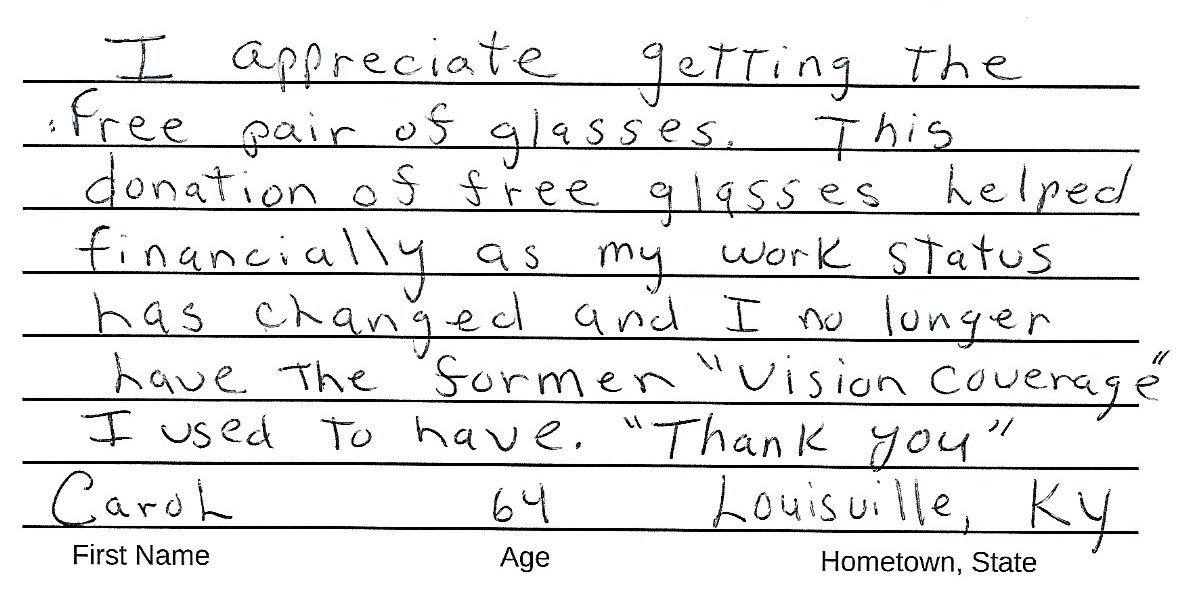 I appreciate getting the
free pair of glasses. This
donation of free glasses helped
financially as my work status
has changed and I no longer
have the former "Vision Coverage"
I used to have. "Thank you"
Carol 64 Louisville, Ky
First Name Age Hometown, State